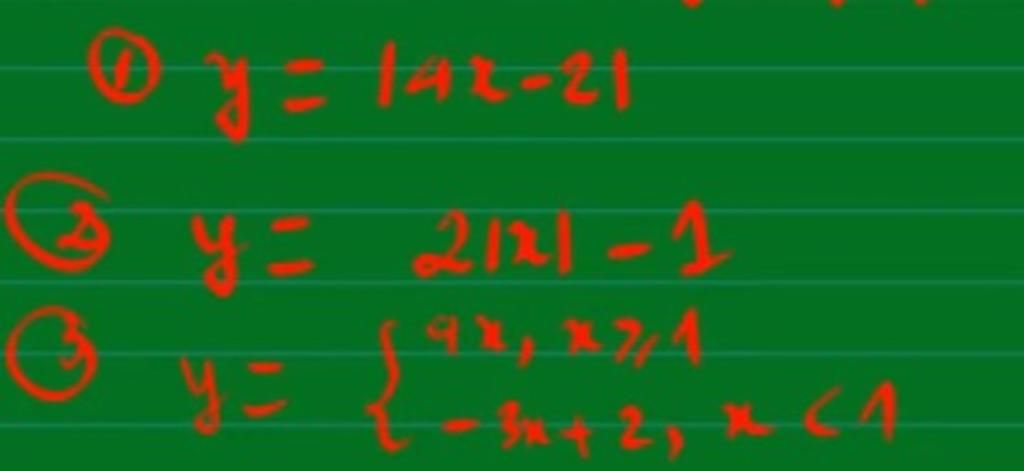 ① y = |4x-2|
② y = 2|x| - 1
③ y = { 4x, x ⩾ 1
-3x+2, x < 1